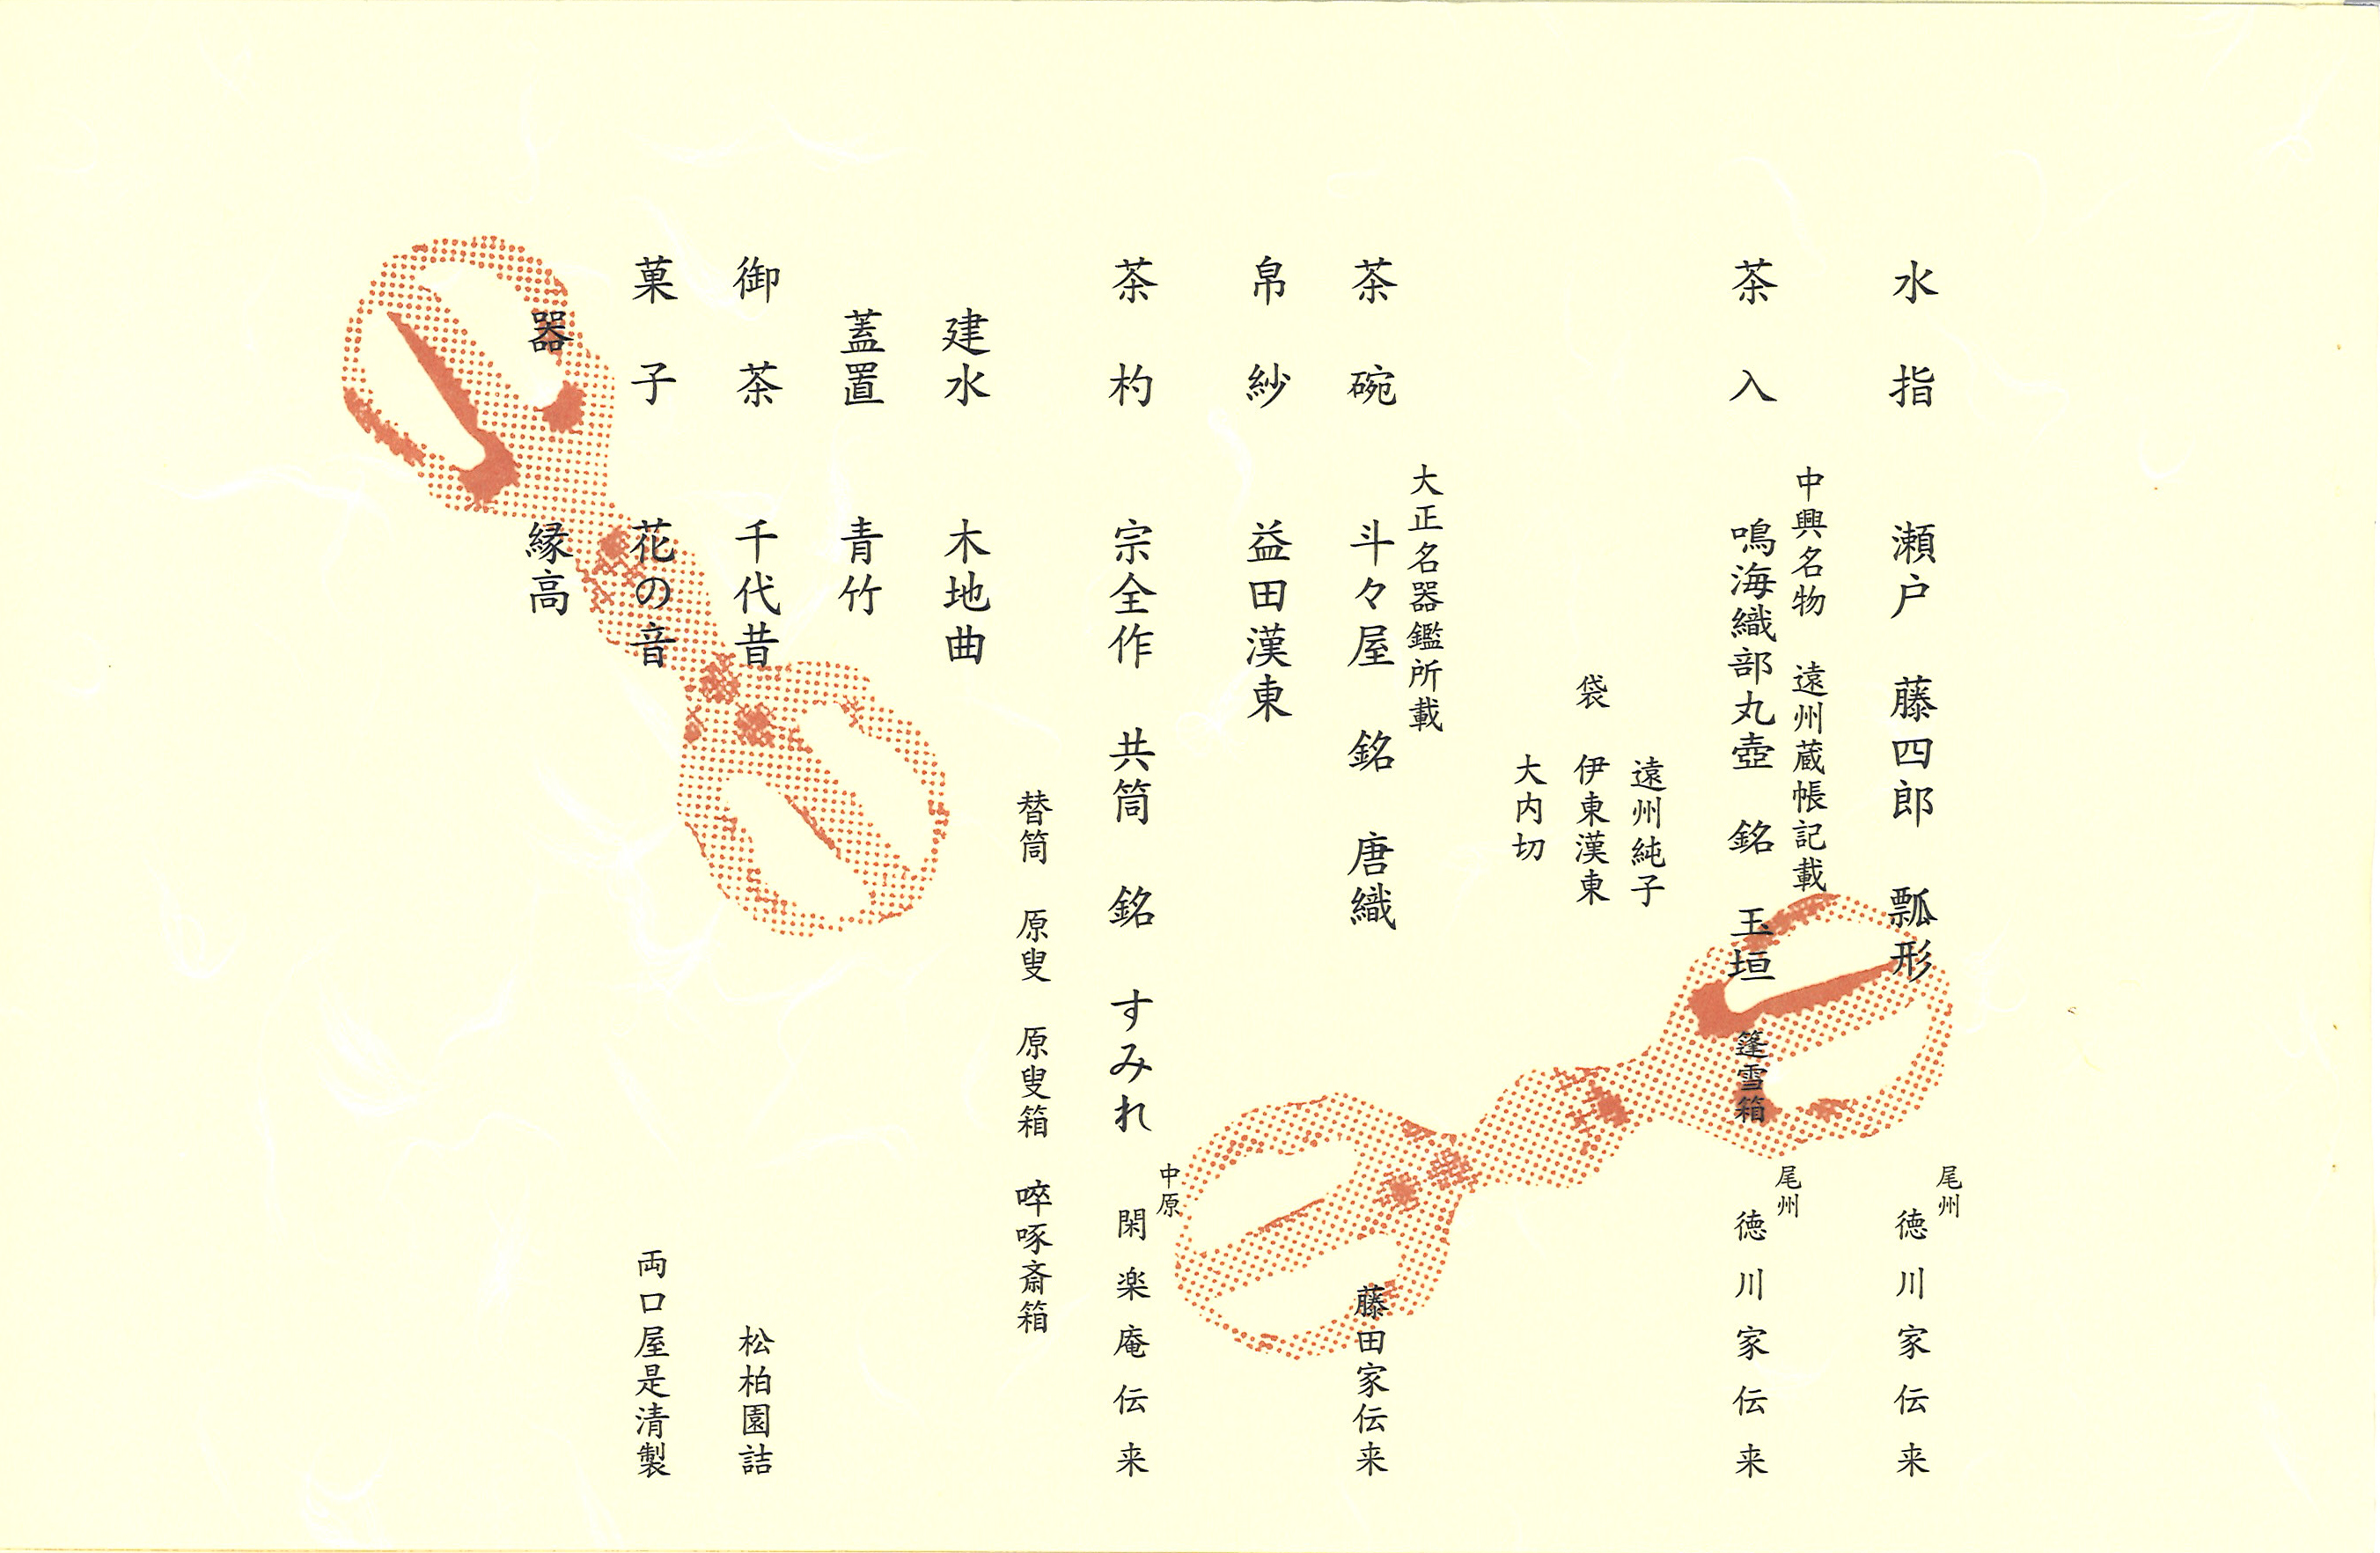 水指　瀬戸　藤四郎　瓢形　尾州徳川家伝来
中興名物　遠州蔵帳記載
茶入　鳴海織部丸壺　銘　玉垣　篷雪箱　尾州徳川家伝来
遠州純子
袋　伊東漢東
大内切
大正名器鑑所載
茶碗　斗々屋　銘　唐織　藤田家伝来
帛紗　益田漢東
茶杓　宗全作　共筒　銘　すみれ　中原閑楽庵伝来
替筒　原叟　原叟箱　啐啄斎箱
建水　木地曲
蓋置　青竹
御茶　千代昔　松柏園詰
菓子　花の音　両口屋是清製
器　縁高